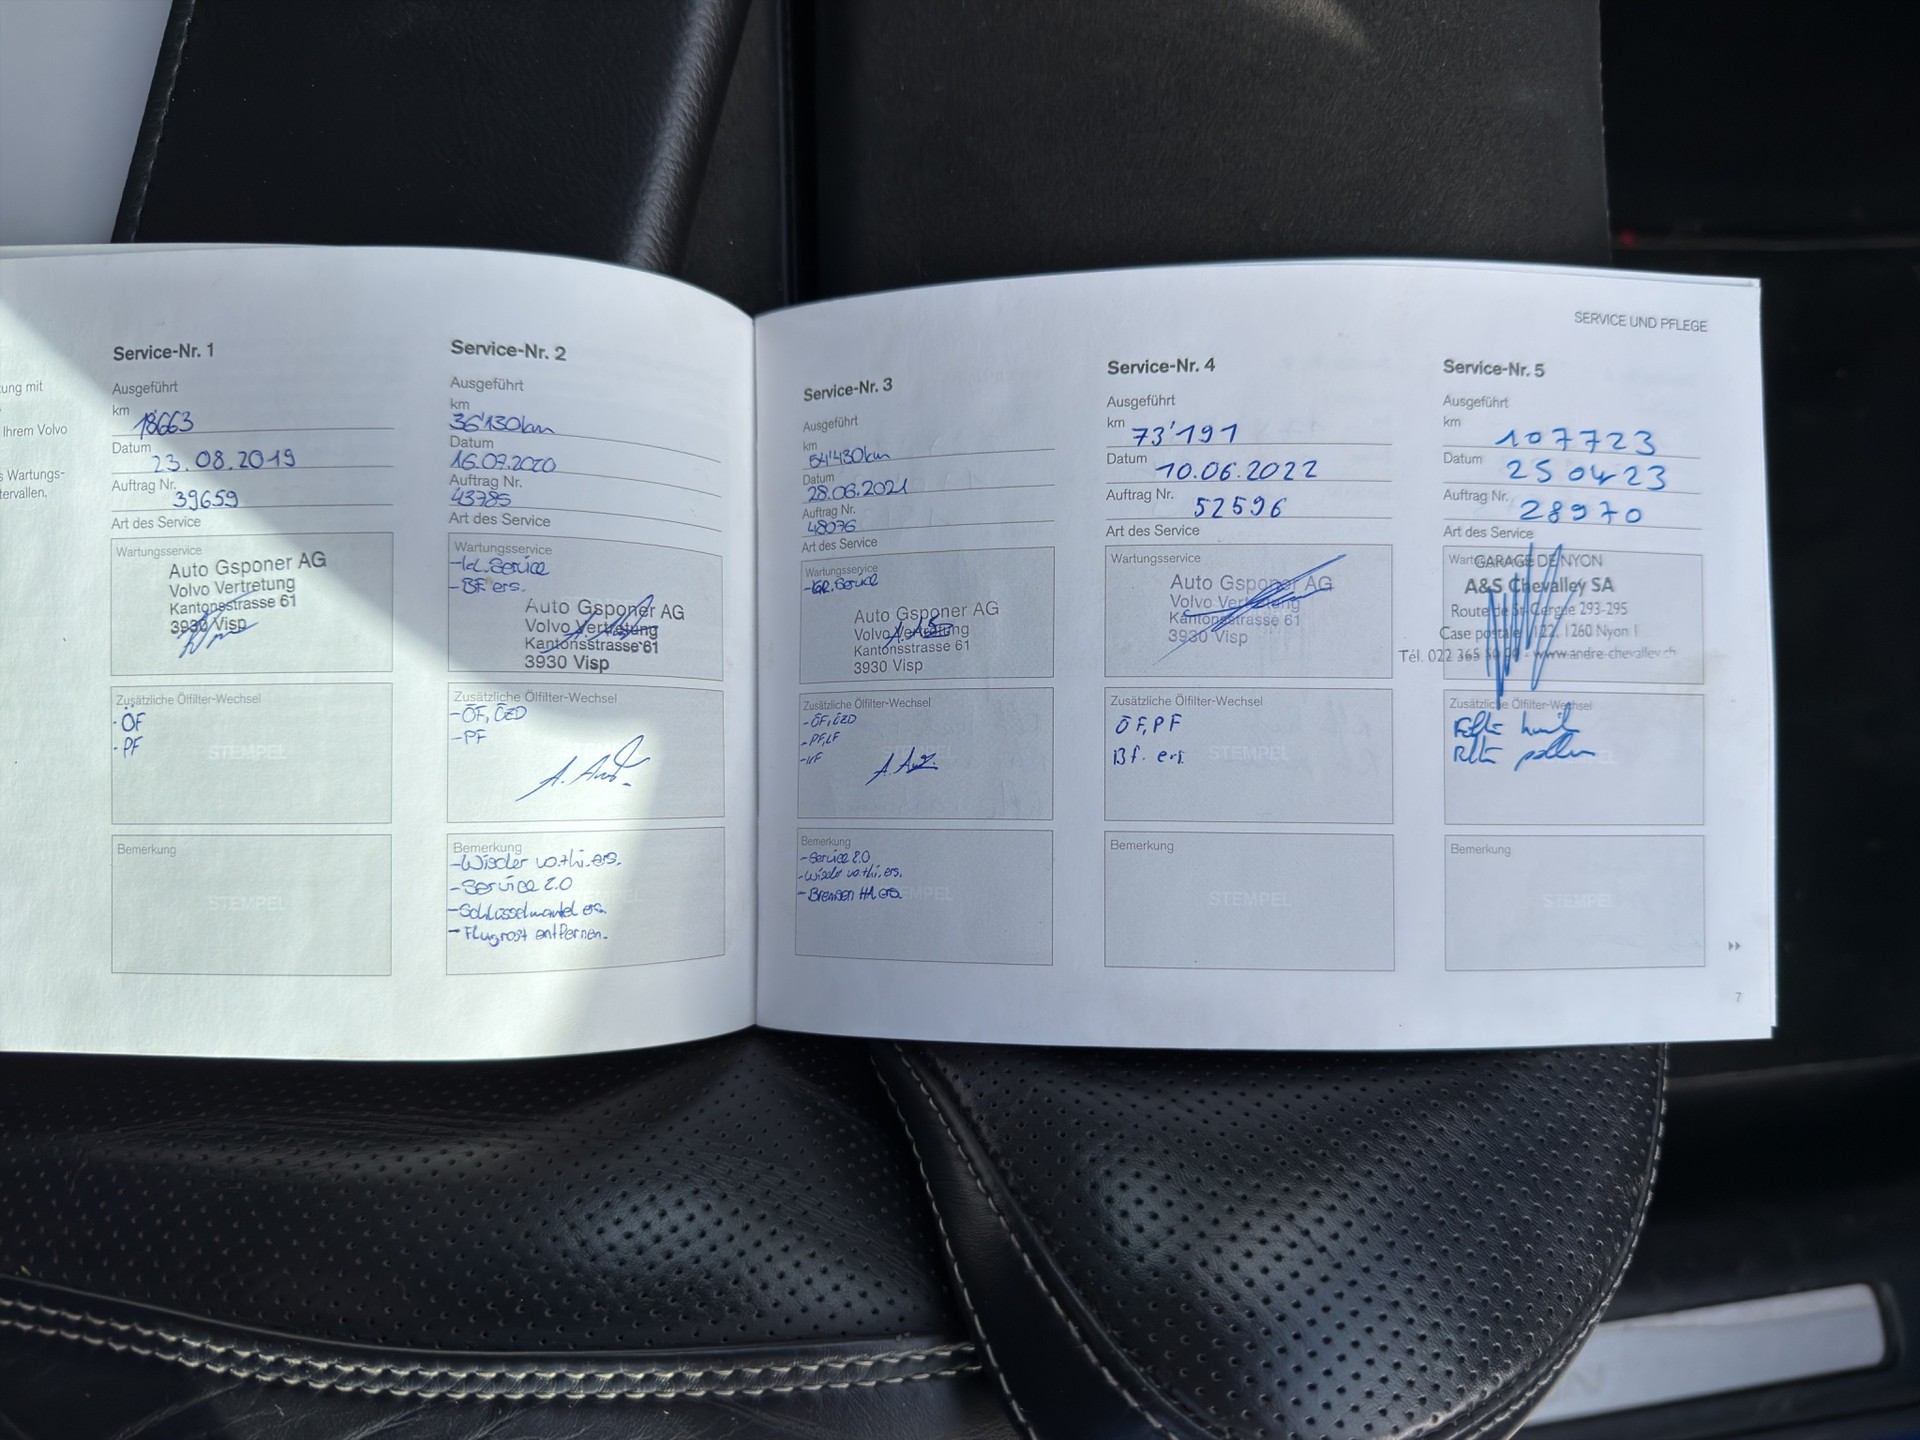 ung mit
Ihrem Volvo
s Wartungs-
tervallen.
Service-Nr. 1
Ausgeführt
km 18663
Datum 23.08.2019
Auftrag Nr. 39659
Art des Service
Wartungsservice
Auto Gsponer AG
Volvo Vertretung
Kantonsstrasse 61
3930 Visp
Zusätzliche Ölfilter-Wechsel
- ÖF
- PF
STEMPEL
Bemerkung
STEMPEL
Service-Nr. 2
Ausgeführt
km 36'130km
Datum 16.07.2020
Auftrag Nr. 43785
Art des Service
Wartungsservice
- kl. Service
- BF ers.
Auto Gsponer AG
Volvo Vertretung
Kantonsstrasse 61
3930 Visp
Zusätzliche Ölfilter-Wechsel
- ÖF, ÖZD
- PF
Bemerkung
- Wischer vo.+hi. ers.
- Service 2.0
- Schlüsselmantel ers.
- Flugrost entfernen.
SERVICE UND PFLEGE
Service-Nr. 3
Ausgeführt
km 54'430km
Datum 28.06.2021
Auftrag Nr. 48076
Art des Service
Wartungsservice
- Gr. Service
Auto Gsponer AG
Volvo Vertretung
Kantonsstrasse 61
3930 Visp
Zusätzliche Ölfilter-Wechsel
- ÖF, ÖZD
- PF, LF
Bemerkung
- Service 2.0
- Wischer vo.+hi. ers.
- Bremsen HA ers.
Service-Nr. 4
Ausgeführt
km 73'191
Datum 10.06.2022
Auftrag Nr. 52596
Art des Service
Wartungsservice
Auto Gsponer AG
Volvo Vertretung
Kantonsstrasse 61
3930 Visp
Zusätzliche Ölfilter-Wechsel
ÖF, PF
Bf. ers.
STEMPEL
Bemerkung
STEMPEL
Service-Nr. 5
Ausgeführt
km 107723
Datum 25 04 23
Auftrag Nr. 28970
Art des Service
GARAGE DE NYON
A&S Chevalley SA
Route de St-Cergue 293-295
Case postale 1122, 1260 Nyon 1
Tél. 022 365 50 - www.andre-chevalley.ch
Zusätzliche Ölfilter-Wechsel
STEMPEL
Bemerkung
STEMPEL
7